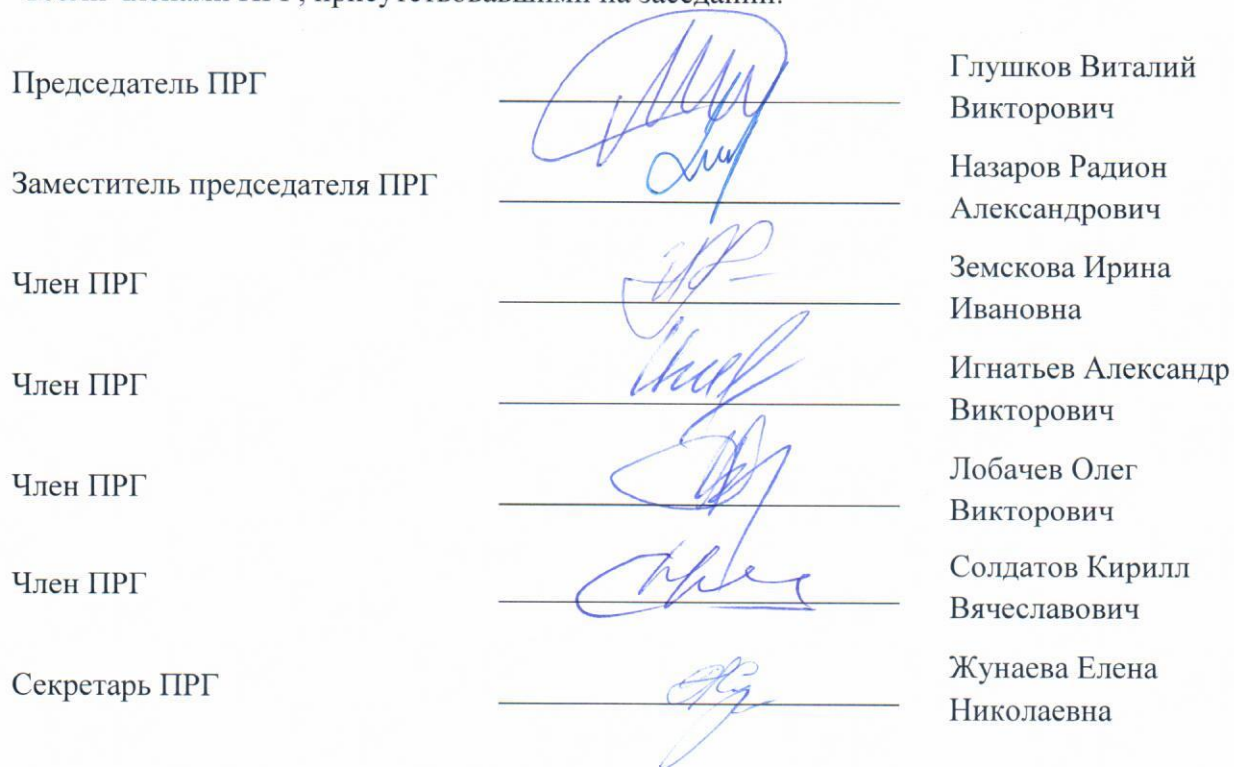 всеми членами ПРГ, присутствовавшими на заседании.
Председатель ПРГ
Глушков Виталий
Викторович
Заместитель председателя ПРГ
Назаров Радион
Александрович
Член ПРГ
Земскова Ирина
Ивановна
Член ПРГ
Игнатьев Александр
Викторович
Член ПРГ
Лобачев Олег
Викторович
Член ПРГ
Солдатов Кирилл
Вячеславович
Секретарь ПРГ
Жунаева Елена
Николаевна